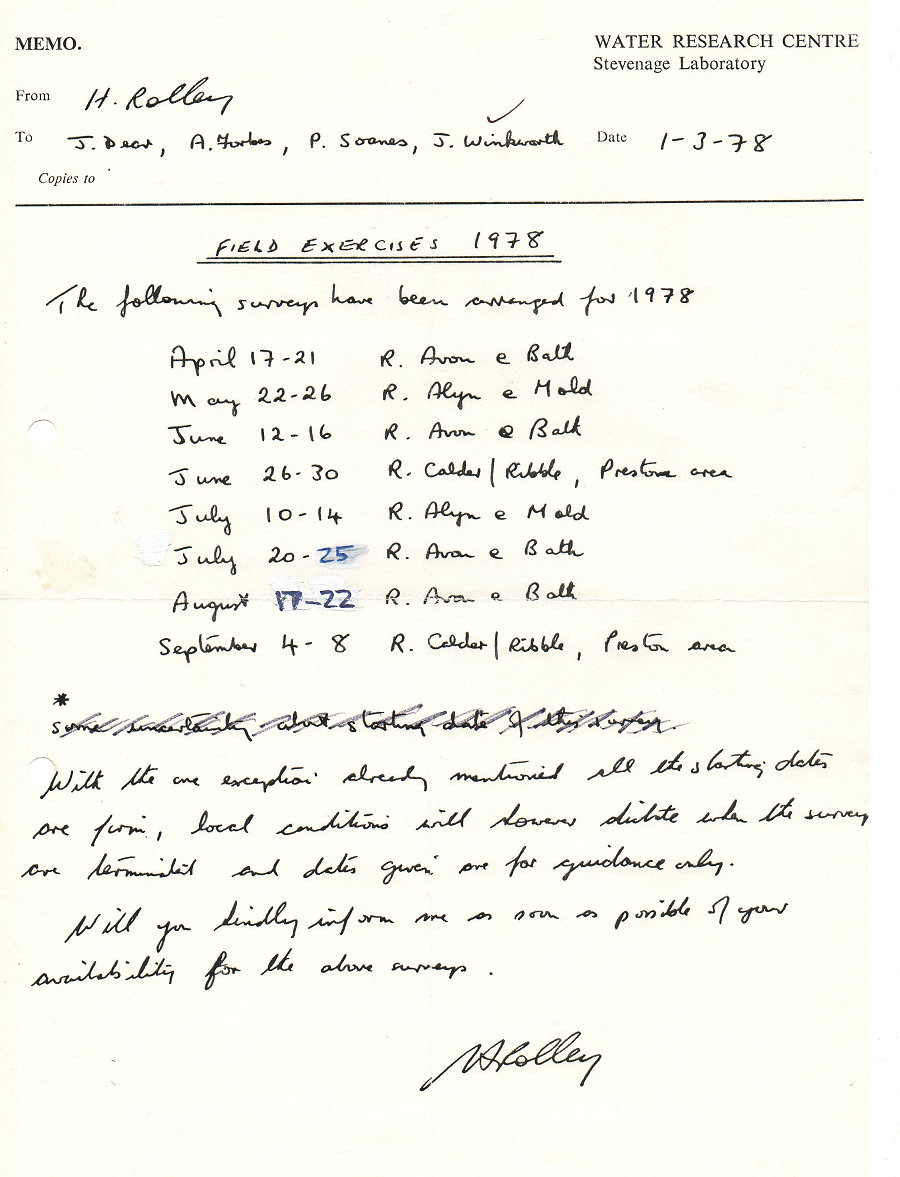 MEMO.
WATER RESEARCH CENTRE
Stevenage Laboratory
From H. Rolley
To J. Dear, A. Forbes, P. Soanes, J. Winkworth Date 1-3-78
Copies to
FIELD EXERCISES 1978
The following surveys have been arranged for 1978
April 17-21 R. Avon @ Bath
May 22-26 R. Alyn @ Mold
June 12-16 R. Avon @ Bath
June 26-30 R. Calder/Ribble, Preston area
July 10-14 R. Alyn @ Mold
July 20-25 R. Avon @ Bath
August* 17-22 R. Avon @ Bath
September 4-8 R. Calder/Ribble, Preston area
*
some uncertainty about starting date of this survey.
With the one exception already mentioned all the starting dates
are firm, local conditions will however dictate when the surveys
are terminated and dates given are for guidance only.
Will you kindly inform me as soon as possible of your
availability for the above surveys.
H Rolley